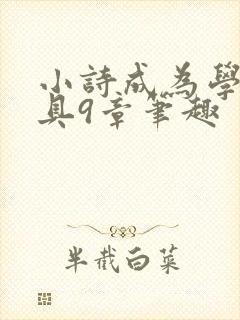 小詩成為學
具9章筆趣
半截白菜